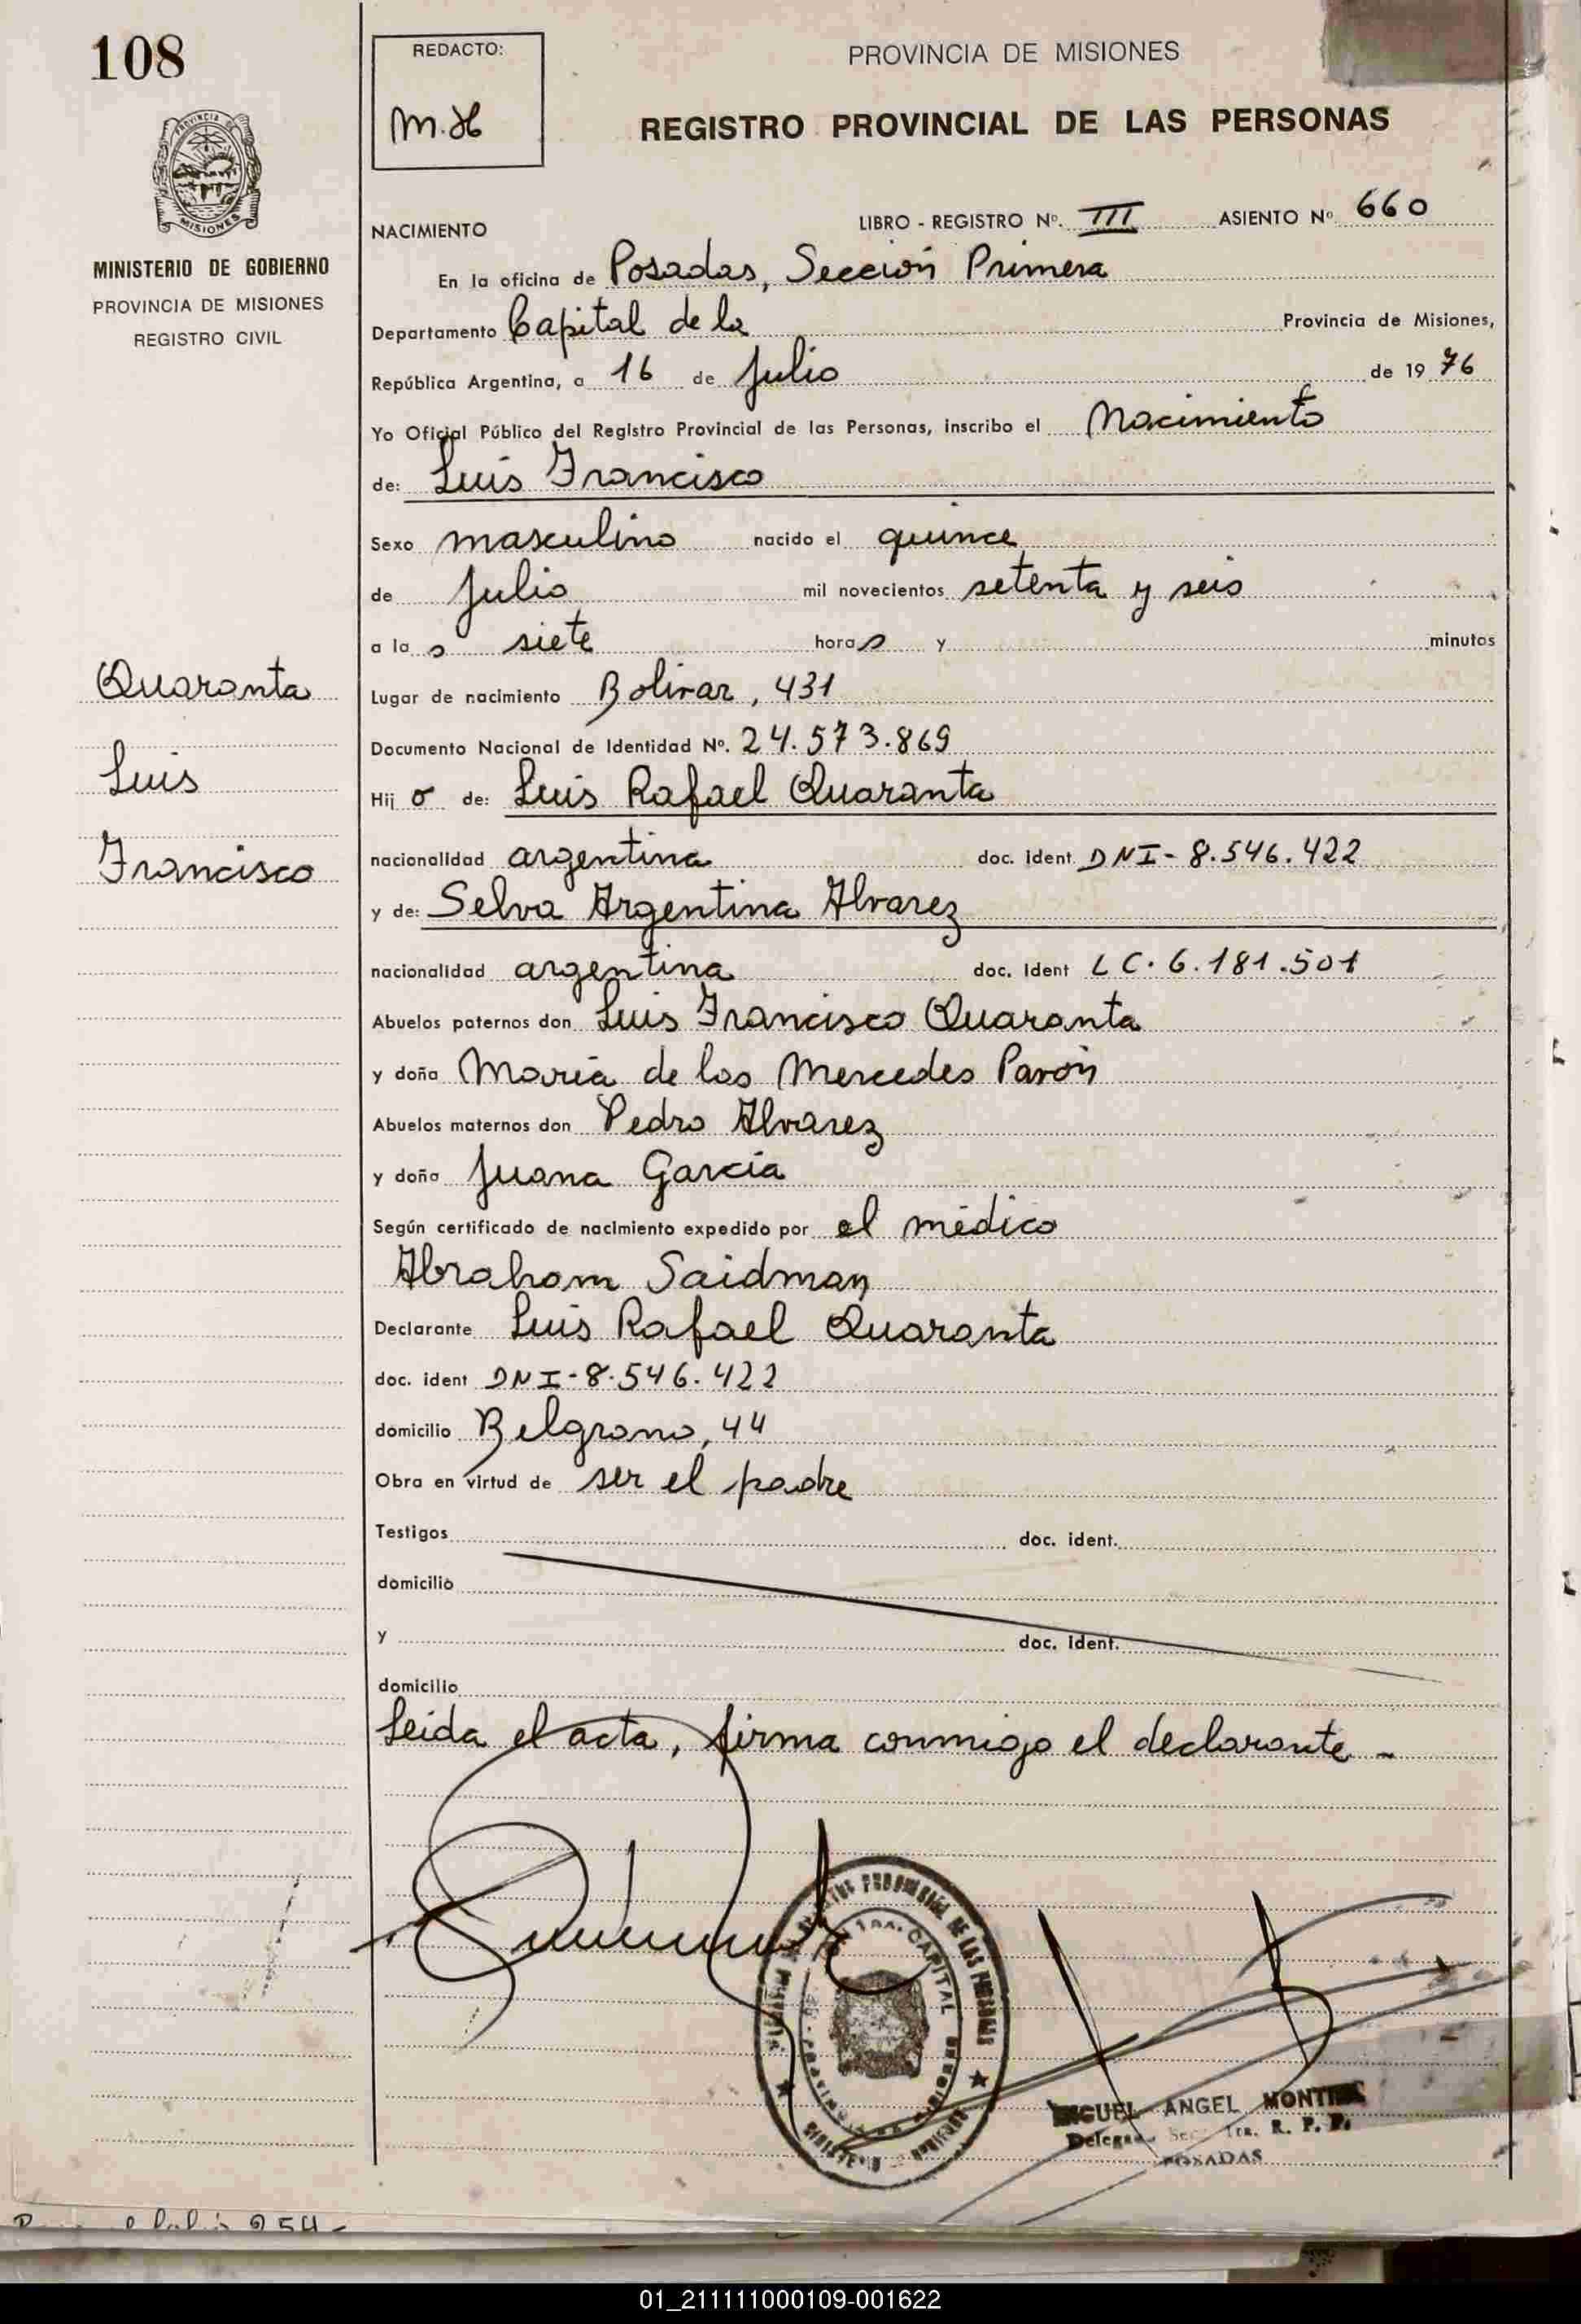 108
REDACTO:
M.H
PROVINCIA DE MISIONES
REGISTRO PROVINCIAL DE LAS PERSONAS
PROVINCIA DE
MISIONES
MINISTERIO DE GOBIERNO
PROVINCIA DE MISIONES
REGISTRO CIVIL
NACIMIENTO LIBRO - REGISTRO Nº. III ASIENTO Nº. 660
En la oficina de Posadas, Sección Primera
Departamento Capital de la Provincia de Misiones,
República Argentina, a 16 de Julio de 19 76
Yo Oficial Público del Registro Provincial de las Personas, inscribo el Nacimiento
de: Luis Francisco
Sexo masculino nacido el quince
de Julio mil novecientos setenta y seis
a la s siete horas y minutos
Quaranta
Lugar de nacimiento Bolivar, 431
Documento Nacional de Identidad Nº. 24.573.869
Luis
Hij o de: Luis Rafael Quaranta
Francisco
nacionalidad argentina doc. Ident. DNI- 8.546.422
y de: Selva Argentina Alvarez
nacionalidad argentina doc. Ident LC. 6.181.501
Abuelos paternos don Luis Francisco Quaranta
y doña María de las Mercedes Pavón
Abuelos maternos don Pedro Alvarez
y doña Juana García
Según certificado de nacimiento expedido por el médico
Abraham Saidman
Declarante Luis Rafael Quaranta
doc. ident DNI-8.546.422
domicilio Belgrano, 44
Obra en virtud de ser el padre
Testigos doc. ident.
domicilio
y doc. ident.
domicilio
Leida el acta, firma conmigo el declarante -
PROVINCIAL DE LAS PERSONAS
CAPITAL
MIGUEL ANGEL
R. P. P.
POSADAS
01_211111000109-001622